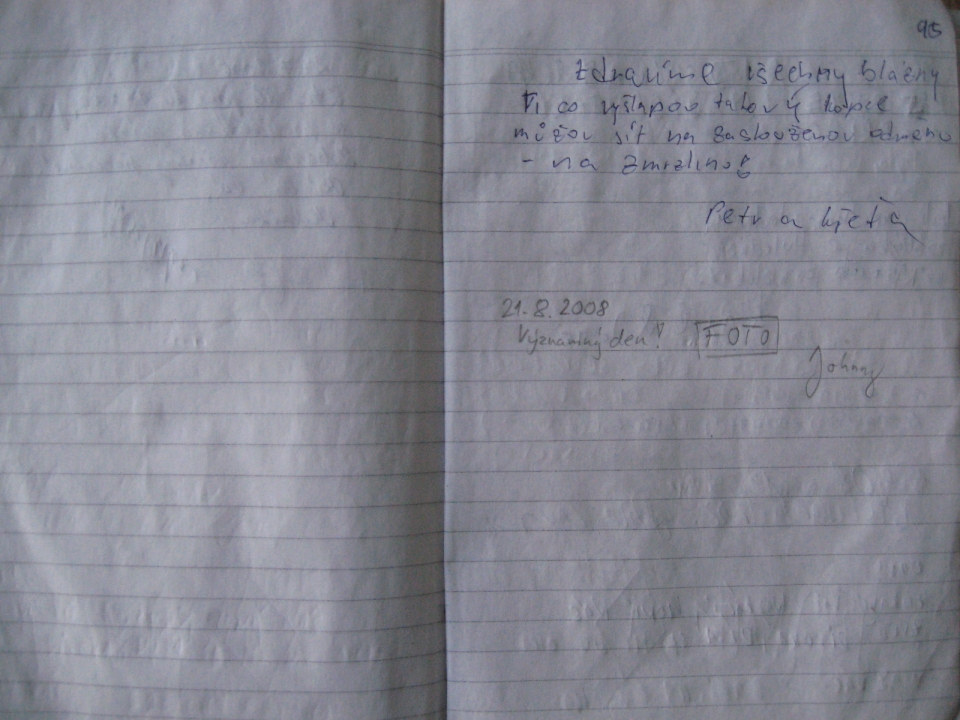 95
Zdravíme všechny blázny
Ti co vyšlapou takový kopec
můžou jít na zaslouženou odměnu
- na zmrzlinu
Petr a Květa
21.8.2008
Významný den! FOTO
Johnny